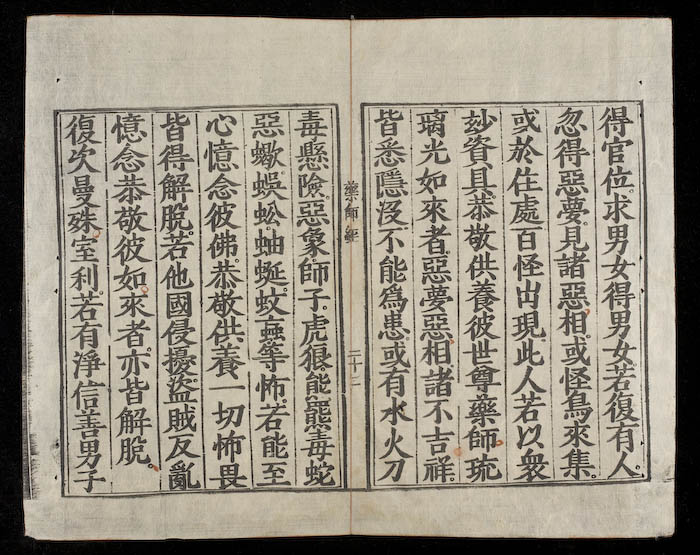 得官位。求男女得男女若復有人。
忽得惡夢。見諸惡相。或怪鳥來集。
或於住處百怪出現。此人若以衆
玅資具。恭敬供養彼世尊藥師琉
璃光如來者。惡夢惡相諸不吉祥。
皆悉隱沒。不能爲患。或有水火刀
藥師經 二十二
毒懸險。惡象師子。虎狼。熊羆毒蛇
惡蠍。蜈蚣。蚰蜒。蚊䖟等怖。若能至
心憶念彼佛。恭敬供養。一切怖畏
皆得解脫。若他國侵擾盜賊反亂
憶念恭敬彼如來者。亦皆解脫。
復次曼殊室利。若有淨信善男子